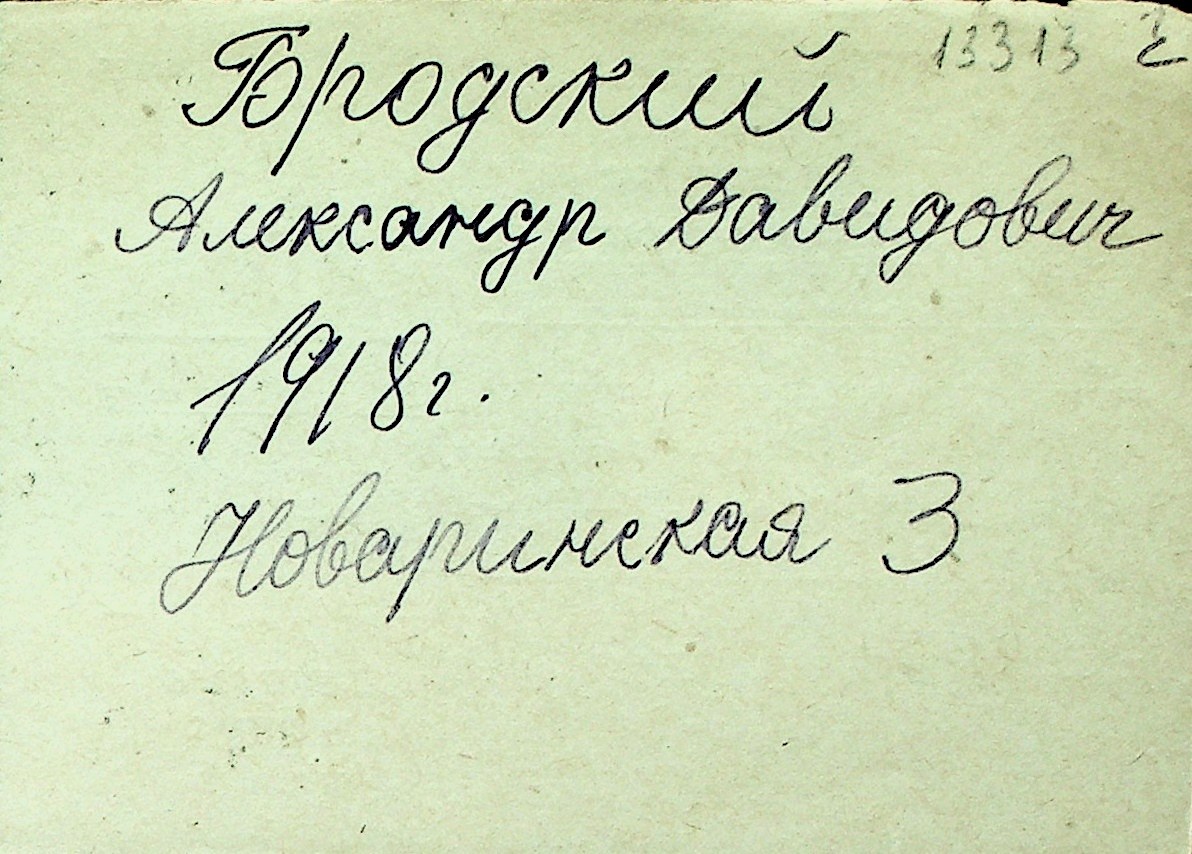 13313
Бродский
Александр Давидович
1918г.
Новаринская 3